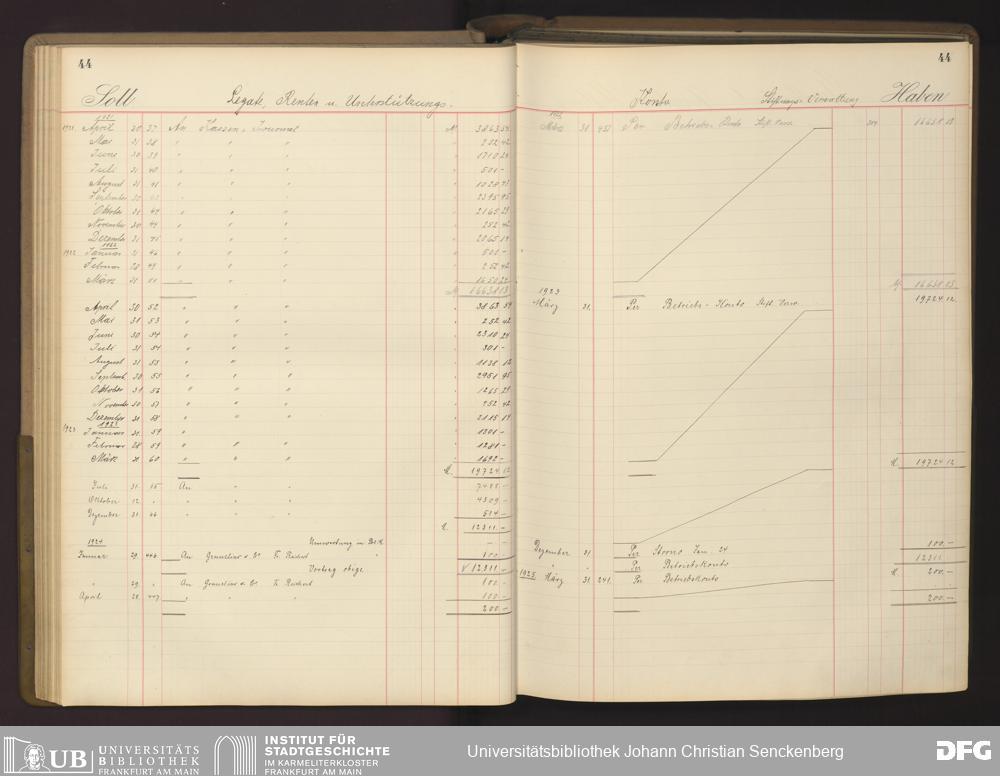 44
Soll Legate, Renten u. Unterstützungs-
1921
1921 April 30 37 An Kassen-Journal M. 3863 54
Mai 31 38 " " " 252 42
Juni 30 39 " " " 1710 29
Juli 31 40 " " " 501 -
August 31 41 " " " 1029
September 30 " " " 2395 95
Oktober 31 " " " 2165 29
November 30 44 " " " 252 42
Dezember 31 45 " " " 2065 19
1922
1922 Januar 31 46 " " " 501 -
Februar 28 49 " " " 252 42
März 31 51 " " " 1650 24
M. 16638 13
April 30 52 " " " 3863 54
Mai 31 53 " " " 252 42
Juni 30 54 " " " 2310 29
Juli 31 54 " " " 301 -
August 31 55 " " " 1138 12
Septemb. 30 55 " " " 2951 95
Oktober 31 56 " " " 1265 29
November 30 57 " " " 252 42
Dezember 31 58 " " " 2115 19
1923
1923 Januar 31 59 " 1301 -
Februar 28 59 " " " 1281 -
März 31 60 " " " 1692 -
M. 19724 12
Juli 31 15 An " " 7488 -
Oktober 12 " " " 4309 -
Dezember 31 " " " 514 -
M. 12311 -
1924 Umwertung in Bil.M.
Januar 29 446 An Grunelius & Co F. Reichert " 100 -
Vortrag obige V 12311 -
" 29 " An Grunelius & Co F. Reichert 100 -
April 28 447 " " " 100 -
200 -
44
Konto Stiftungs-Verwaltung Haben
1922
März 31 451 Per Betriebs-Konto Stift. Verw. 16638 13
M. 16638 13
1923
März 31. Per Betriebs-Konto Stift. Verw. 19724 12
M. 19724 12
Dezember 31 Per Storno Jan. 24 100 -
" " Per Betriebskonto 12311
1925 März 31 241. Per Betriebskonto M. 200 -
200 -
UB UNIVERSITÄTS
BIBLIOTHEK
FRANKFURT AM MAIN
INSTITUT FÜR
STADTGESCHICHTE
IM KARMELITERKLOSTER
FRANKFURT AM MAIN
Universitätsbibliothek Johann Christian Senckenberg
DFG